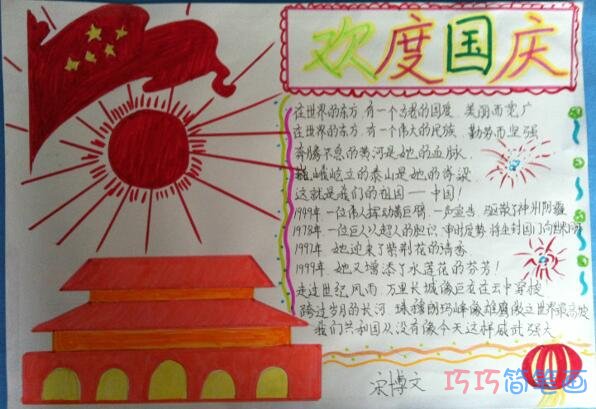 欢度国庆
在世界的东方,有一个古老的国度,美丽而宽广
在世界的东方,有一个伟大的民族,勤劳而坚强
奔腾不息的黄河是她的血脉,
巍峨屹立的泰山是她的脊梁
这就是我们的祖国——中国!
1949年,一位伟人挥动着巨臂,一声宣告,驱散了神州阴霾
1978年,一位巨人以超人的胆识,审时度势,将尘封国门向世界
1997年,她迎来了紫荆花的清香
1999年,她又增添了水莲花的芬芳!
走过世纪风雨,万里长城像巨龙在云中穿梭
跨过岁月的长河,珠穆朗玛峰像雄鹰傲立世界
我们共和国从没有像今天这样威武强大
宋博文
巧巧简笔画